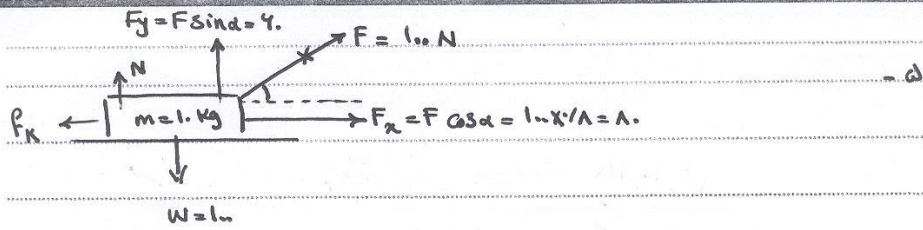 Fy = F sinα = ۶۰
F = ۱۰۰ N
N
۵ -
fK
m = ۱۰ kg
Fx = F cosα = ۱۰۰ × ۰/۸ = ۸۰
W = ۱۰۰